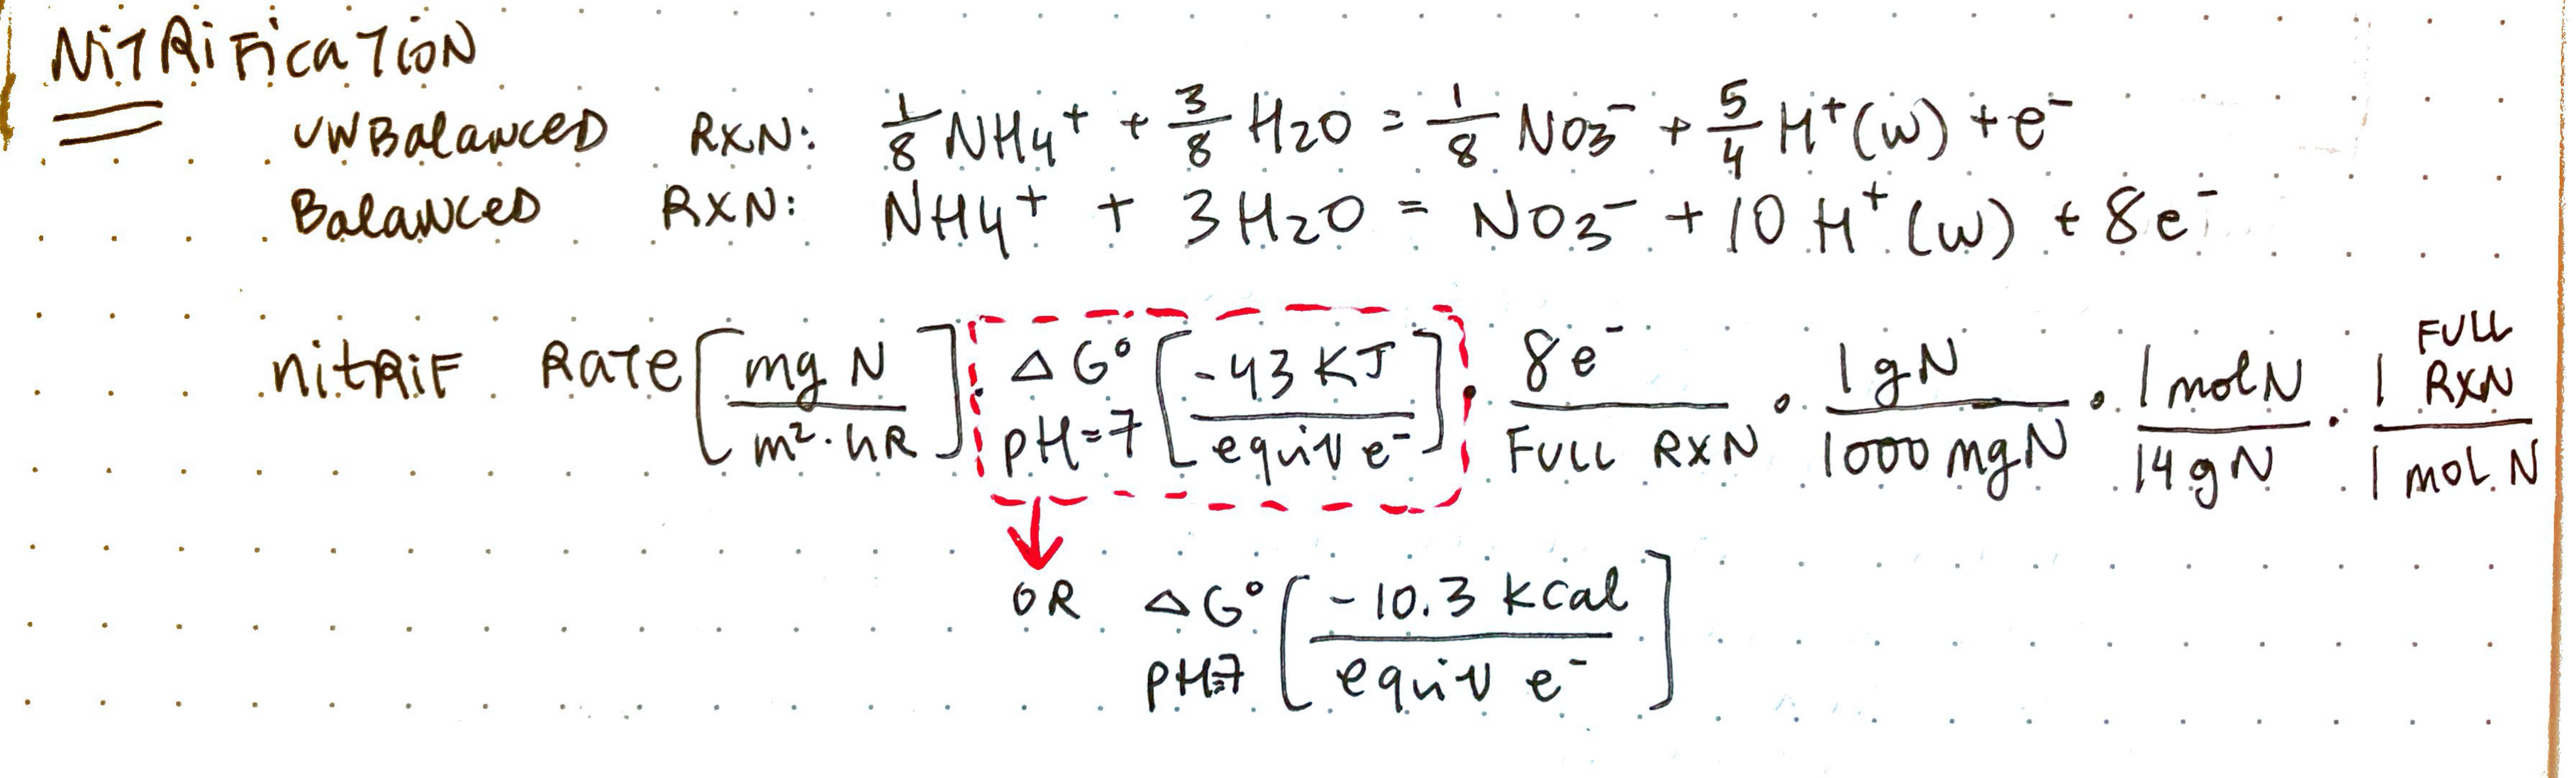 NiTRiFicaTioN
UNBalanceD RXN: 1/8 NH4+ + 3/8 H2O = 1/8 NO3- + 5/4 H+(w) + e-
BalanceD RXN: NH4+ + 3H2O = NO3- + 10 H+(w) + 8e-
nitRiF Rate [mg N / m²·hR] · ΔG° pH=7 [-43 KJ / equiv e-] · 8e- / FULL RXN · 1gN / 1000 mgN · 1 molN / 14 gN · 1 FULL RXN / 1 MOL N
OR ΔG° pH=7 [-10.3 kcal / equiv e-]